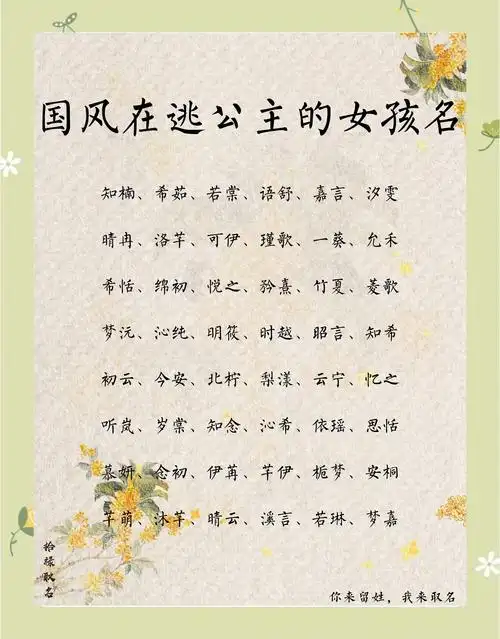 国风在逃公主的女孩名
知楠、希茹、若棠、语舒、嘉言、汐雯
晴冉、洛芊、可伊、瑾歌、一葵、允禾
希恬、绵初、悦之、矜熹、竹夏、菱歌
梦沅、沁纯、明筱、时越、昭言、知希
初云、今安、北柠、梨漾、云宁、忆之
听岚、岁棠、知念、沁希、依瑶、思恬
慕妍、念初、伊苒、芊伊、栀梦、安桐
芊萌、沐芊、晴云、溪言、若琳、梦嘉
拾檬取名
你来留姓，我来取名